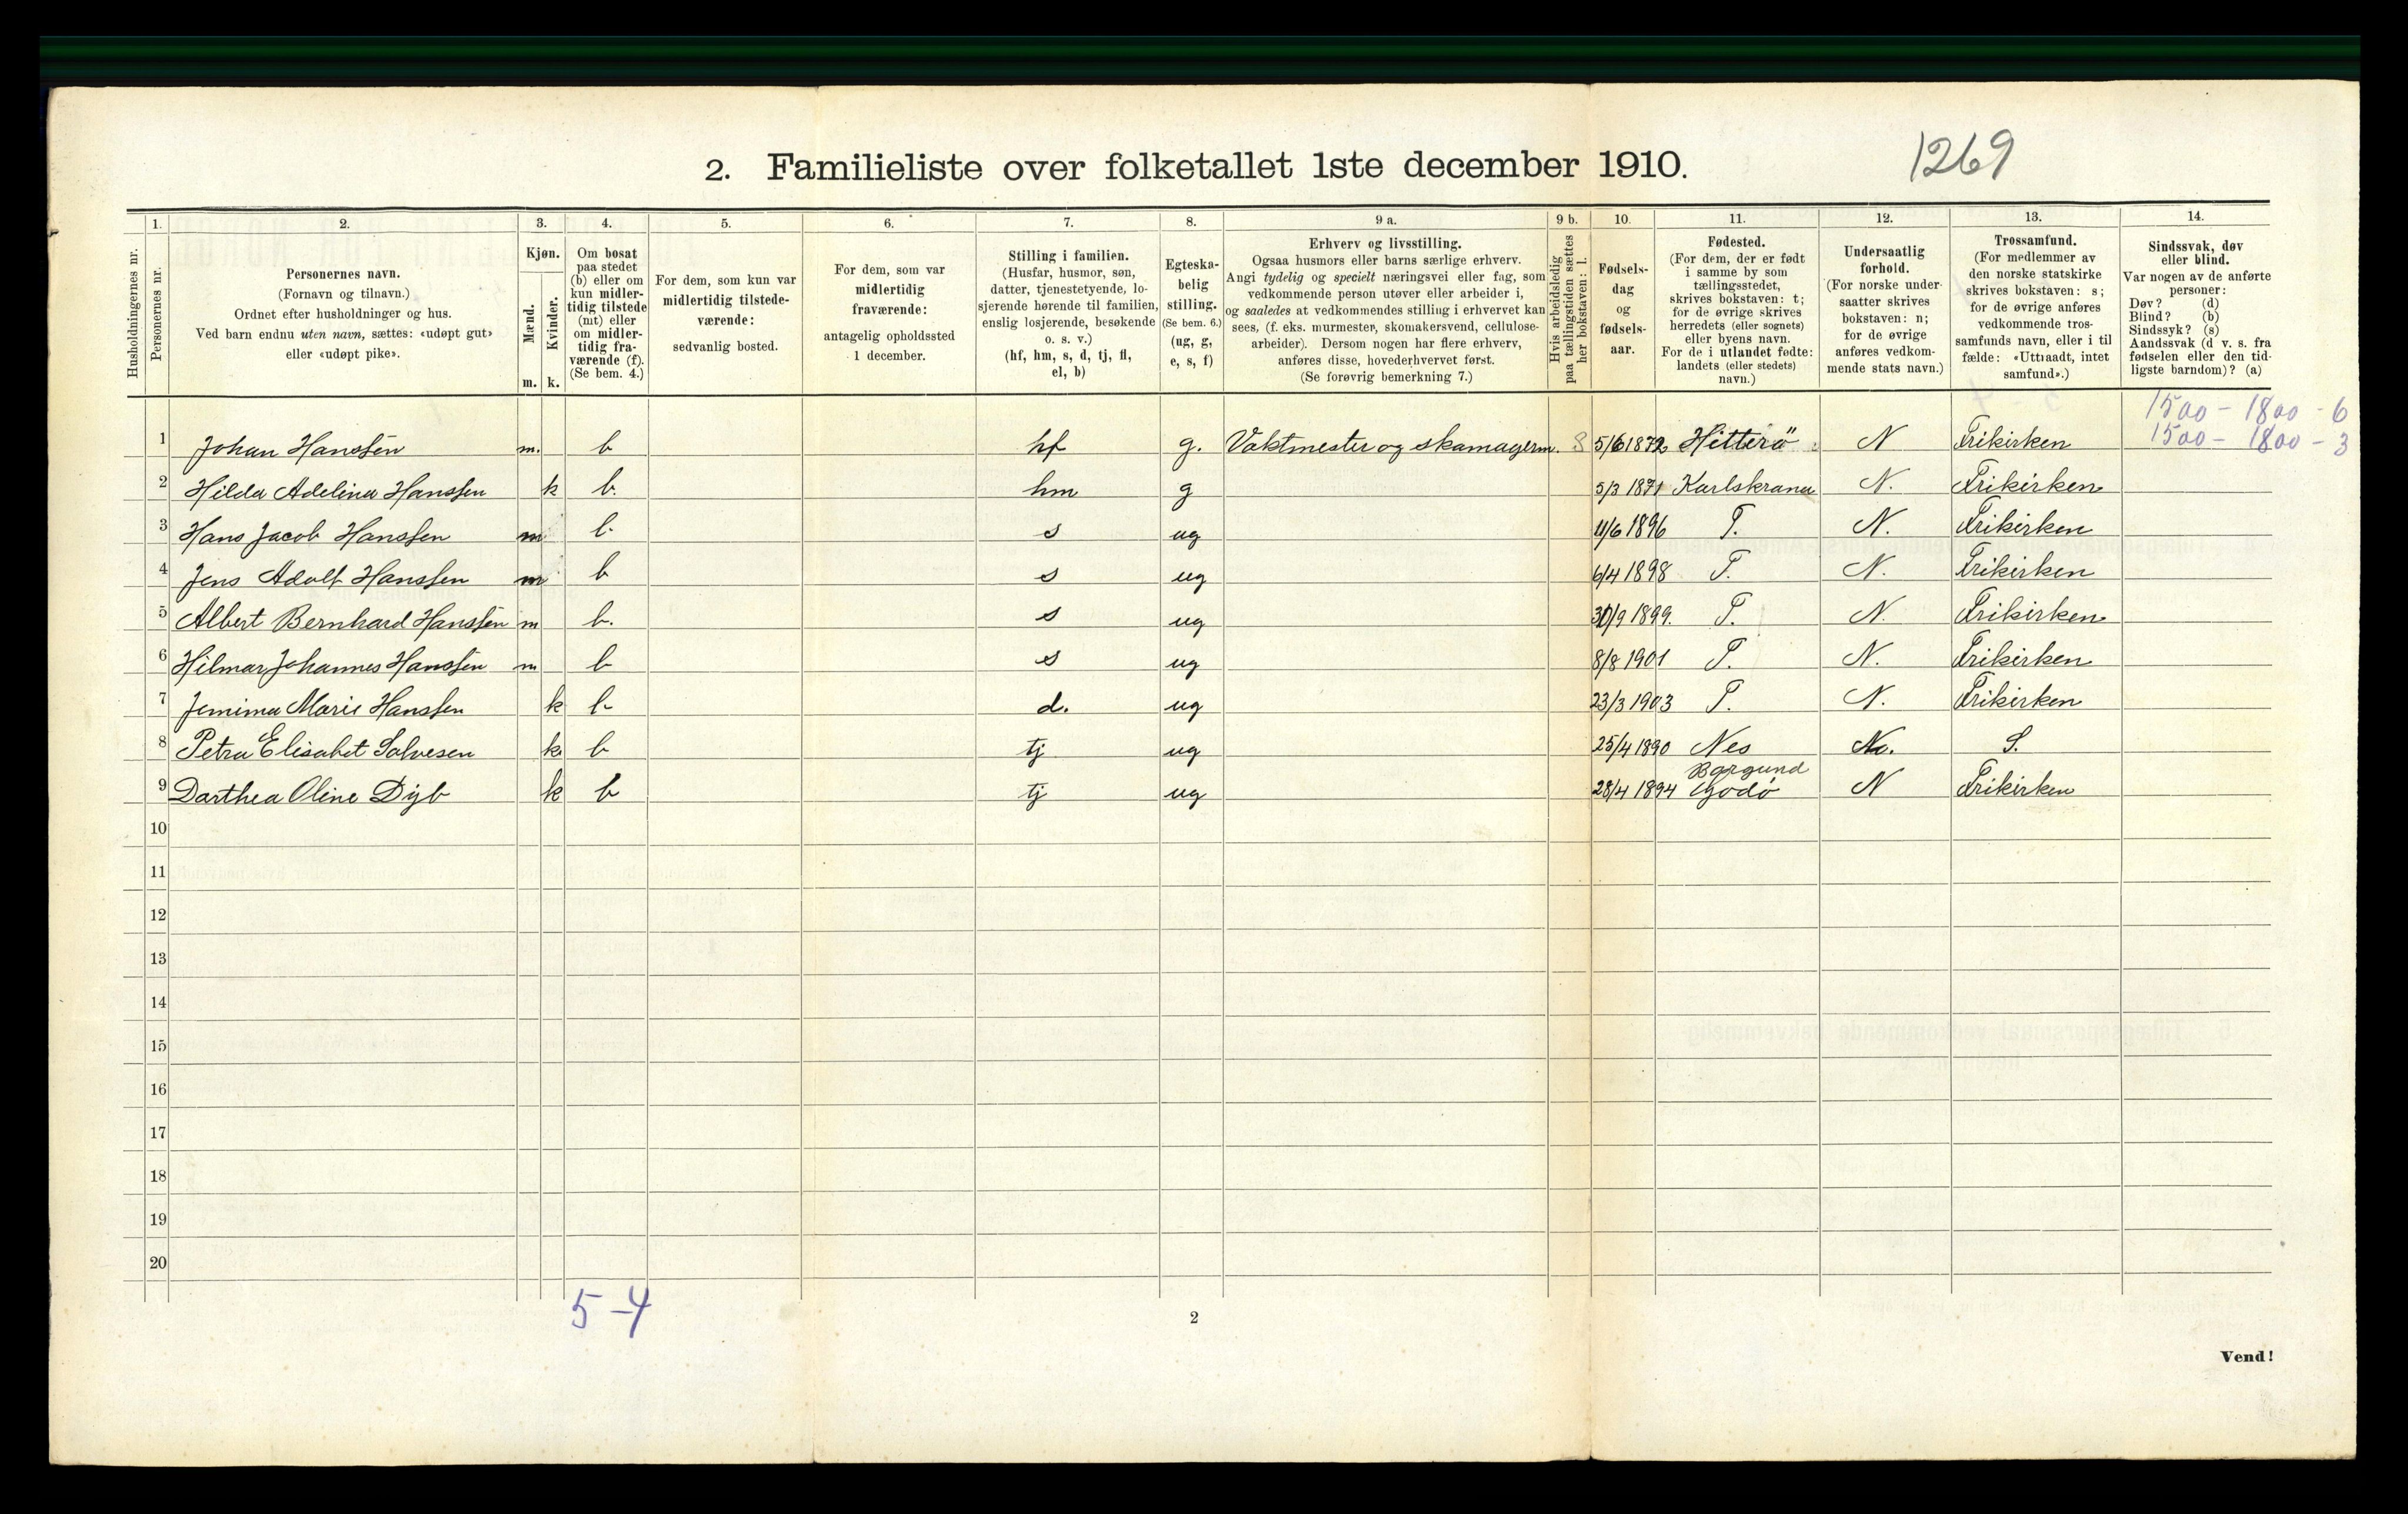 1269
2. Familieliste over folketallet 1ste december 1910.
1. 2. 3. 4. 5. 6. 7. 8. 9 a. 9 b. 10. 11. 12. 13. 14.
Husholdningernes nr.
Personernes nr.
Personernes navn.
(Fornavn og tilnavn.)
Ordnet efter husholdninger og hus.
Ved barn endnu uten navn, sættes: «udøpt gut»
eller «udøpt pike».
Kjøn.
Mænd.
Kvinder.
m. k.
Om bosat
paa stedet
(b) eller om
kun midler-
tidig tilstede
(mt) eller
om midler-
tidig fra-
værende (f).
(Se bem. 4.)
For dem, som kun var
midlertidig tilstede-
værende:
sedvanlig bosted.
For dem, som var
midlertidig
fraværende:
antagelig opholdssted
1 december.
Stilling i familien.
(Husfar, husmor, søn,
datter, tjenestetyende, lo-
sjerende hørende til familien,
enslig losjerende, besøkende
o. s. v.)
(hf, hm, s, d, tj, fl,
el, b)
Egteska-
belig
stilling.
(Se bem. 6.)
(ug, g,
e, s, f)
Erhverv og livsstilling.
Ogsaa husmors eller barns særlige erhverv.
Angi tydelig og specielt næringsvei eller fag, som
vedkommende person utøver eller arbeider i,
og saaledes at vedkommendes stilling i erhvervet kan
sees, (f. eks. murmester, skomakersvend, cellulose-
arbeider). Dersom nogen har flere erhverv,
anføres disse, hovederhvervet først.
(Se forøvrig bemerkning 7.)
Hvis arbeidsledig
paa tællingstiden sættes
her bokstaven: l.
Fødsels-
dag
og
fødsels-
aar.
Fødested.
(For dem, der er født
i samme by som
tællingsstedet,
skrives bokstaven: t;
for de øvrige skrives
herredets (eller sognets)
eller byens navn.
For de i utlandet fødte:
landets (eller stedets)
navn.)
Undersaatlig
forhold.
(For norske under-
saatter skrives
bokstaven: n;
for de øvrige
anføres vedkom-
mende stats navn.)
Trossamfund.
(For medlemmer av
den norske statskirke
skrives bokstaven: s;
for de øvrige anføres
vedkommende tros-
samfunds navn, eller i til
fælde: «Uttraadt, intet
samfund».)
Sindssvak, døv
eller blind.
Var nogen av de anførte
personer:
Døv? (d)
Blind? (b)
Sindssyk? (s)
Aandssvak (d v. s. fra
fødselen eller den tid-
ligste barndom)? (a)
1500 - 1800 - 6
1500 - 1800 - 3
1 Johan Hanssen m. b hf g. Vaktmester og skamagerm. 5/6 1872 Hitterö N Frikirken
2 Hilda Adelina Hanssen k b. hm g 5/3 1871 Karlskrana N. Frikirken
3 Hans Jacob Hanssen m b. s ug 11/6 1896 T. N. Frikirken
4 Jens Adolf Hanssen m b s ug 6/4 1898 T. N. Frikirken
5 Albert Bernhard Hanssen m b. s ug 30/9 1899. T. N. Frikirken
6 Hilmar Johannes Hanssen m b s ug 8/8 1901 T. N. Frikirken
7 Jemima Marie Hanssen k b d. ug 23/3 1903 T. N. Frikirken
8 Petra Elisabet Salvesen k b tj ug 25/4 1890 Nes N. S.
9 Darthea Oline Dyb k b tj ug 28/4 1894 Borgund Godø N Frikirken
10
11
12
13
14
15
16
17
18
19
20
5-4
2
Vend!